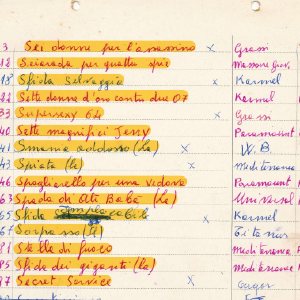 3 Sei donne per l'assassino x Grassi
12 Sciarada per quattro spie Massone Giov.
18 Sfida Selvaggia x Karmel
22 Sette donne d'oro contro due 07 Karmel
33 Supersexy 64 x Grassi
40 Sette magnifici Jerry Paramount
41 Smania addosso (la) x W.B
43 Spiata (la) x Mediterranea
46 Spogliarello per una vedova Paramount
63 Spada di Alì Babà (la) Universal
65 Sfida implacabile x Karmel
67 Sorpasso (il) Titanus
81 Stelle di fuoco Mediterranea
85 Sfida dei giganti (la) Mediterranea
97 Secret Service x